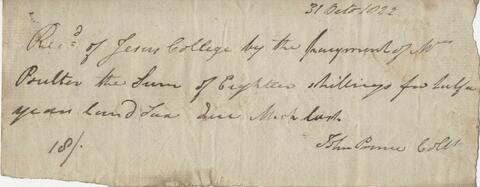 31 Octo 1822
Rec.d of Jesus College by the payment of Mrs
Poulter the Sum of Eighteen shillings for half a
year Land Tax due Mich last
18/. John Prince Collr